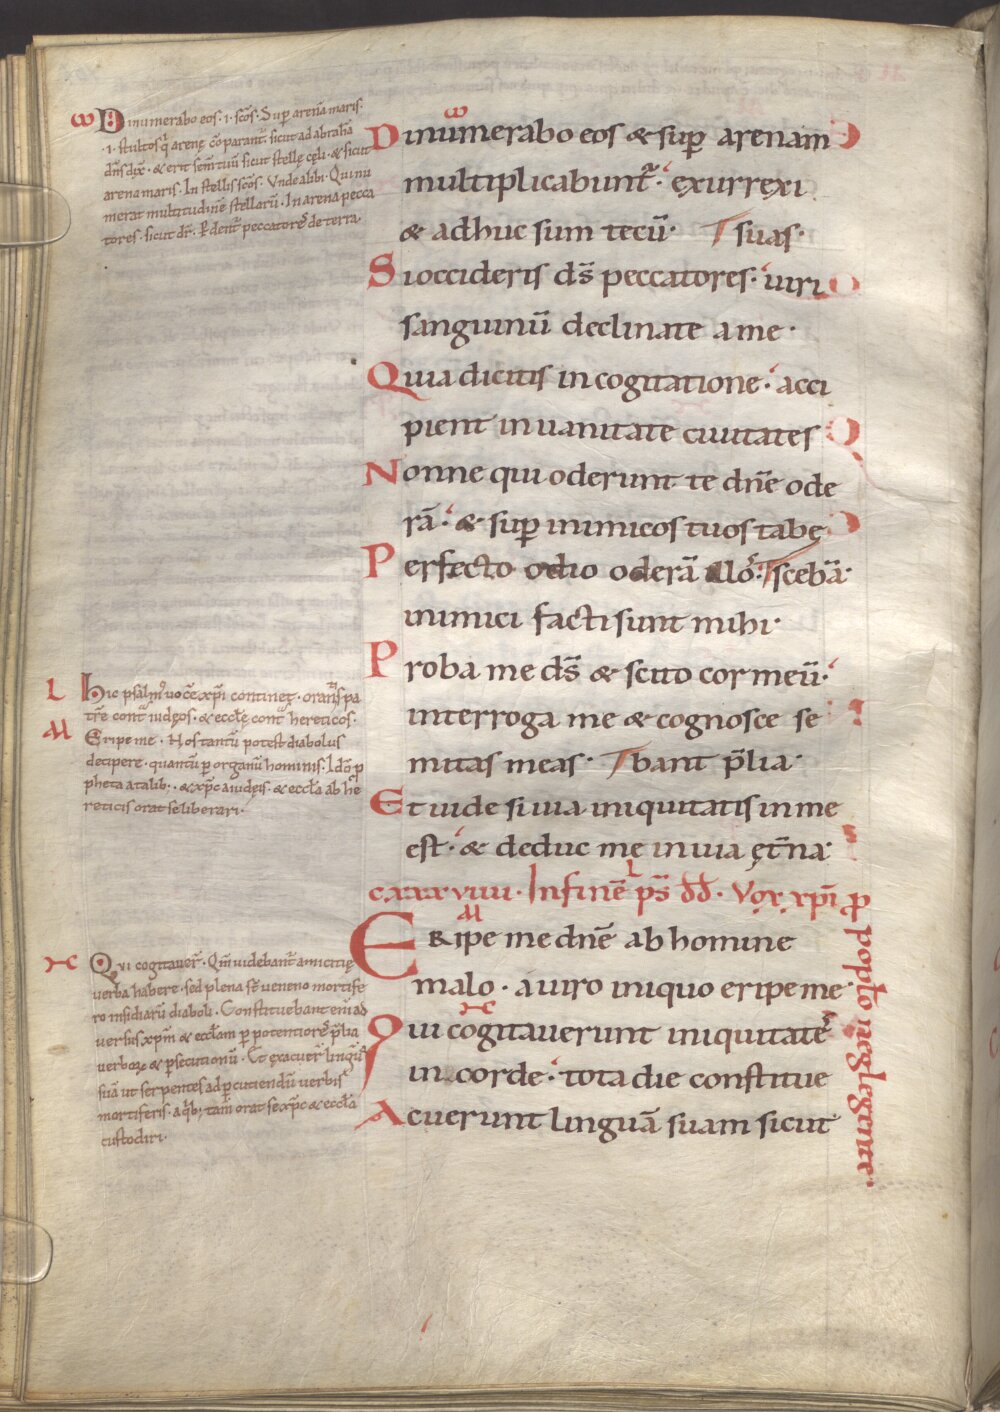 Dinumerabo eos · i · scōs · Sup arenā maris ·
· i · stultos q̄ arenę cōparant̄ sicut ad abrahā
dn̄s dix̄ · & erit sem̄ tuū sicut stellę cęli · & sicut
arena maris · In stellis scōs · Unde alibi · Qui nu
merat multitudinē stellarū · In arena pecca
tores · sicut dr̄ · P dent̄ peccatores de terra ·
Dinumerabo eos & sup arenam
multiplicabunt̄ · exurręxi
& adhuc sum tecū · suas ·
Si occideris ds̄ peccatores · uiri
sanguinū declinate a me ·
Quia dicitis in cogitatione · acci
pient in uanitate ciuitates
Nonne qui oderunt te dn̄e ode
rā · & sup inimicos tuos tabę
Perfecto odio oderā illos · scebā ·
inimici facti sunt mihi ·
Proba me ds̄ & scito cor meū ·
interroga me & cognosce se
mitas meas · bant p̄lia ·
Et uide si uia iniquitatis in me
est · & deduc me in uia ęt̄na ·
L
Hic psalm̄ uocē xp̄i continet · orantis pa
trē cont̄ iudęos · & ecclę cont̄ hereticos ·
Eripe me · Nos tantū potest diabolus
decipere · quantū p organū hominis · Idō p
pheta a talib; · & xp̄c a iudęis · & eccla ab he
reticis orat se liberari ·
cxxxviiii · In finē ps̄ dd̄ · Vox xp̄i p
popło neglegente ·
Eripe me dn̄e ab homine
malo · a uiro iniquo eripe me ·
Qui cogitauerunt iniquitates
in corde · tota die constitue
Acuerunt linguā suam sicut
Qui cogitauer̄ · Qm̄ uidebant̄ amicitię
uerba habere · sed plena sē ueneno mortife
ro insidiarū diaboli · Constituebant eni ad
uersus xp̄m & ecclam p potentiores p̄lia
uerborę & psecutionū · Et exacuer̄ linguā
suā ut serpentes ad pcutiendū uerbis
mortiferis · a q̄b; tam̄ orat se xp̄c & eccla
custodiri ·